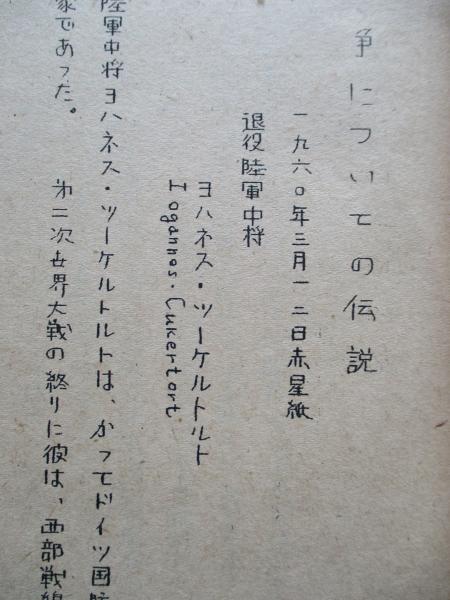 争についての伝説
一九六〇年三月一二日赤星紙
退役陸軍中将
ヨハネス・ツーケルトルト
Iogannos・Cukertort
陸軍中将ヨハネス・ツーケルトルトは、かつてドイツ国防
家であった。
第二次世界大戦の終りに彼は、西部戦線